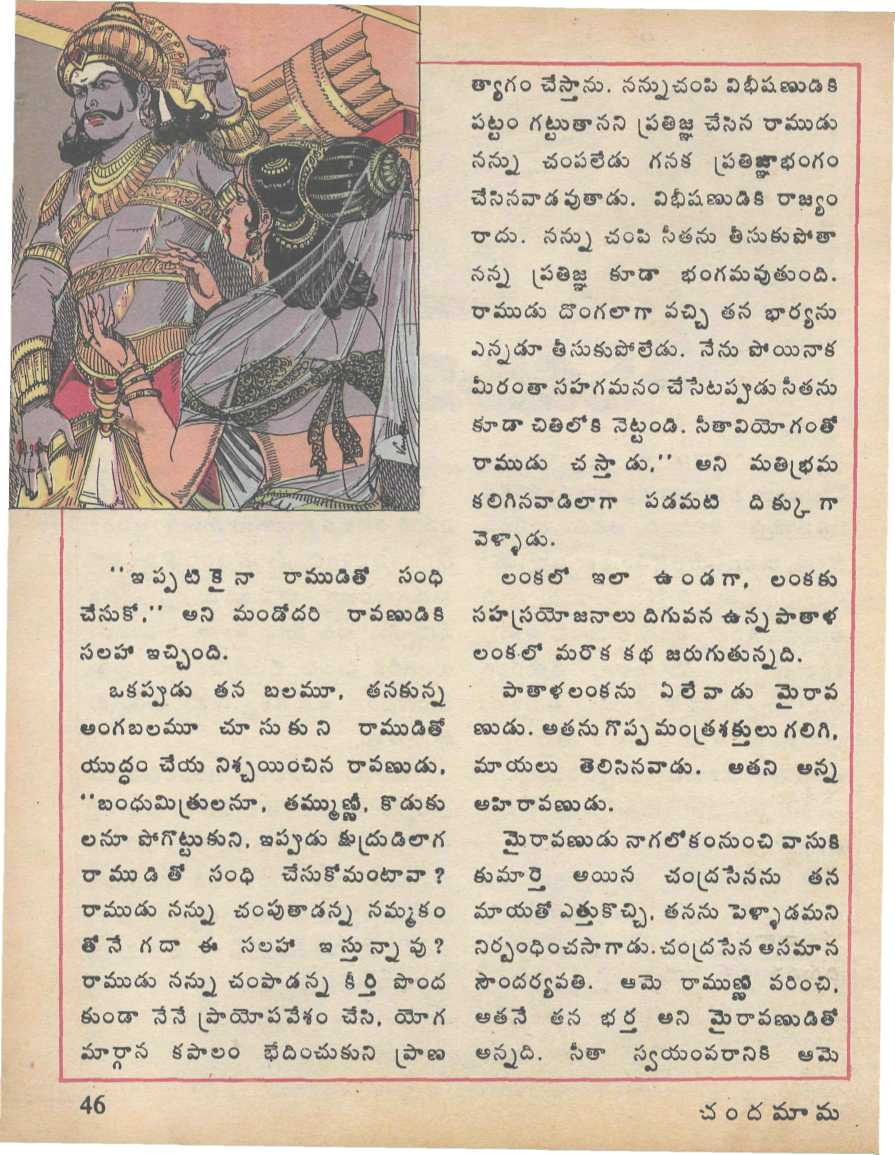 ''ఇప్పటికైనా రాముడితో సంధి
చేసుకో,'' అని మండోదరి రావణుడికి
సలహా ఇచ్చింది.
ఒకప్పుడు తన బలమూ, తనకున్న
అంగబలమూ చూసుకుని రాముడితో
యుద్ధం చేయ నిశ్చయించిన రావణుడు,
''బంధుమిత్రులనూ, తమ్ముణ్ణీ, కొడుకు
లనూ పోగొట్టుకుని, ఇప్పుడు క్షుద్రుడిలాగ
రాముడితో సంధి చేసుకోమంటావా?
రాముడు నన్ను చంపుతాడన్న నమ్మకం
తోనే గదా ఈ సలహా ఇస్తున్నావు?
రాముడు నన్ను చంపాడన్న కీర్తి పొంద
కుండా నేనే ప్రాయోపవేశం చేసి, యోగ
మార్గాన కపాలం భేదించుకుని ప్రాణ
త్యాగం చేస్తాను. నన్నుచంపి విభీషణుడికి
పట్టం గట్టుతానని ప్రతిజ్ఞ చేసిన రాముడు
నన్ను చంపలేడు గనక ప్రతిజ్ఞాభంగం
చేసినవాడవుతాడు. విభీషణుడికి రాజ్యం
రాదు. నన్ను చంపి సీతను తీసుకుపోతా
నన్న ప్రతిజ్ఞ కూడా భంగమవుతుంది.
రాముడు దొంగలాగా వచ్చి తన భార్యను
ఎన్నడూ తీసుకుపోలేడు. నేను పోయినాక
మీరంతా సహగమనం చేసేటప్పుడు సీతను
కూడా చితిలోకి నెట్టండి. సీతావియోగంతో
రాముడు చస్తాడు,'' అని మతిభ్రమ
కలిగినవాడిలాగా పడమటి దిక్కుగా
వెళ్ళాడు.
లంకలో ఇలా ఉండగా, లంకకు
సహస్రయోజనాలు దిగువన ఉన్న పాతాళ
లంకలో మరొక కథ జరుగుతున్నది.
పాతాళలంకను ఏలేవాడు మైరావ
ణుడు. అతను గొప్ప మంత్రశక్తులు గలిగి,
మాయలు తెలిసినవాడు. అతని అన్న
అహిరావణుడు.
మైరావణుడు నాగలోకంనుంచి వాసుకి
కుమార్తె అయిన చంద్రసేనను తన
మాయతో ఎత్తుకొచ్చి, తనను పెళ్ళాడమని
నిర్బంధించసాగాడు. చంద్రసేన అసమాన
సౌందర్యవతి. ఆమె రాముణ్ణి వరించి,
అతనే తన భర్త అని మైరావణుడితో
అన్నది. సీతా స్వయంవరానికి ఆమె
46
చందమామ